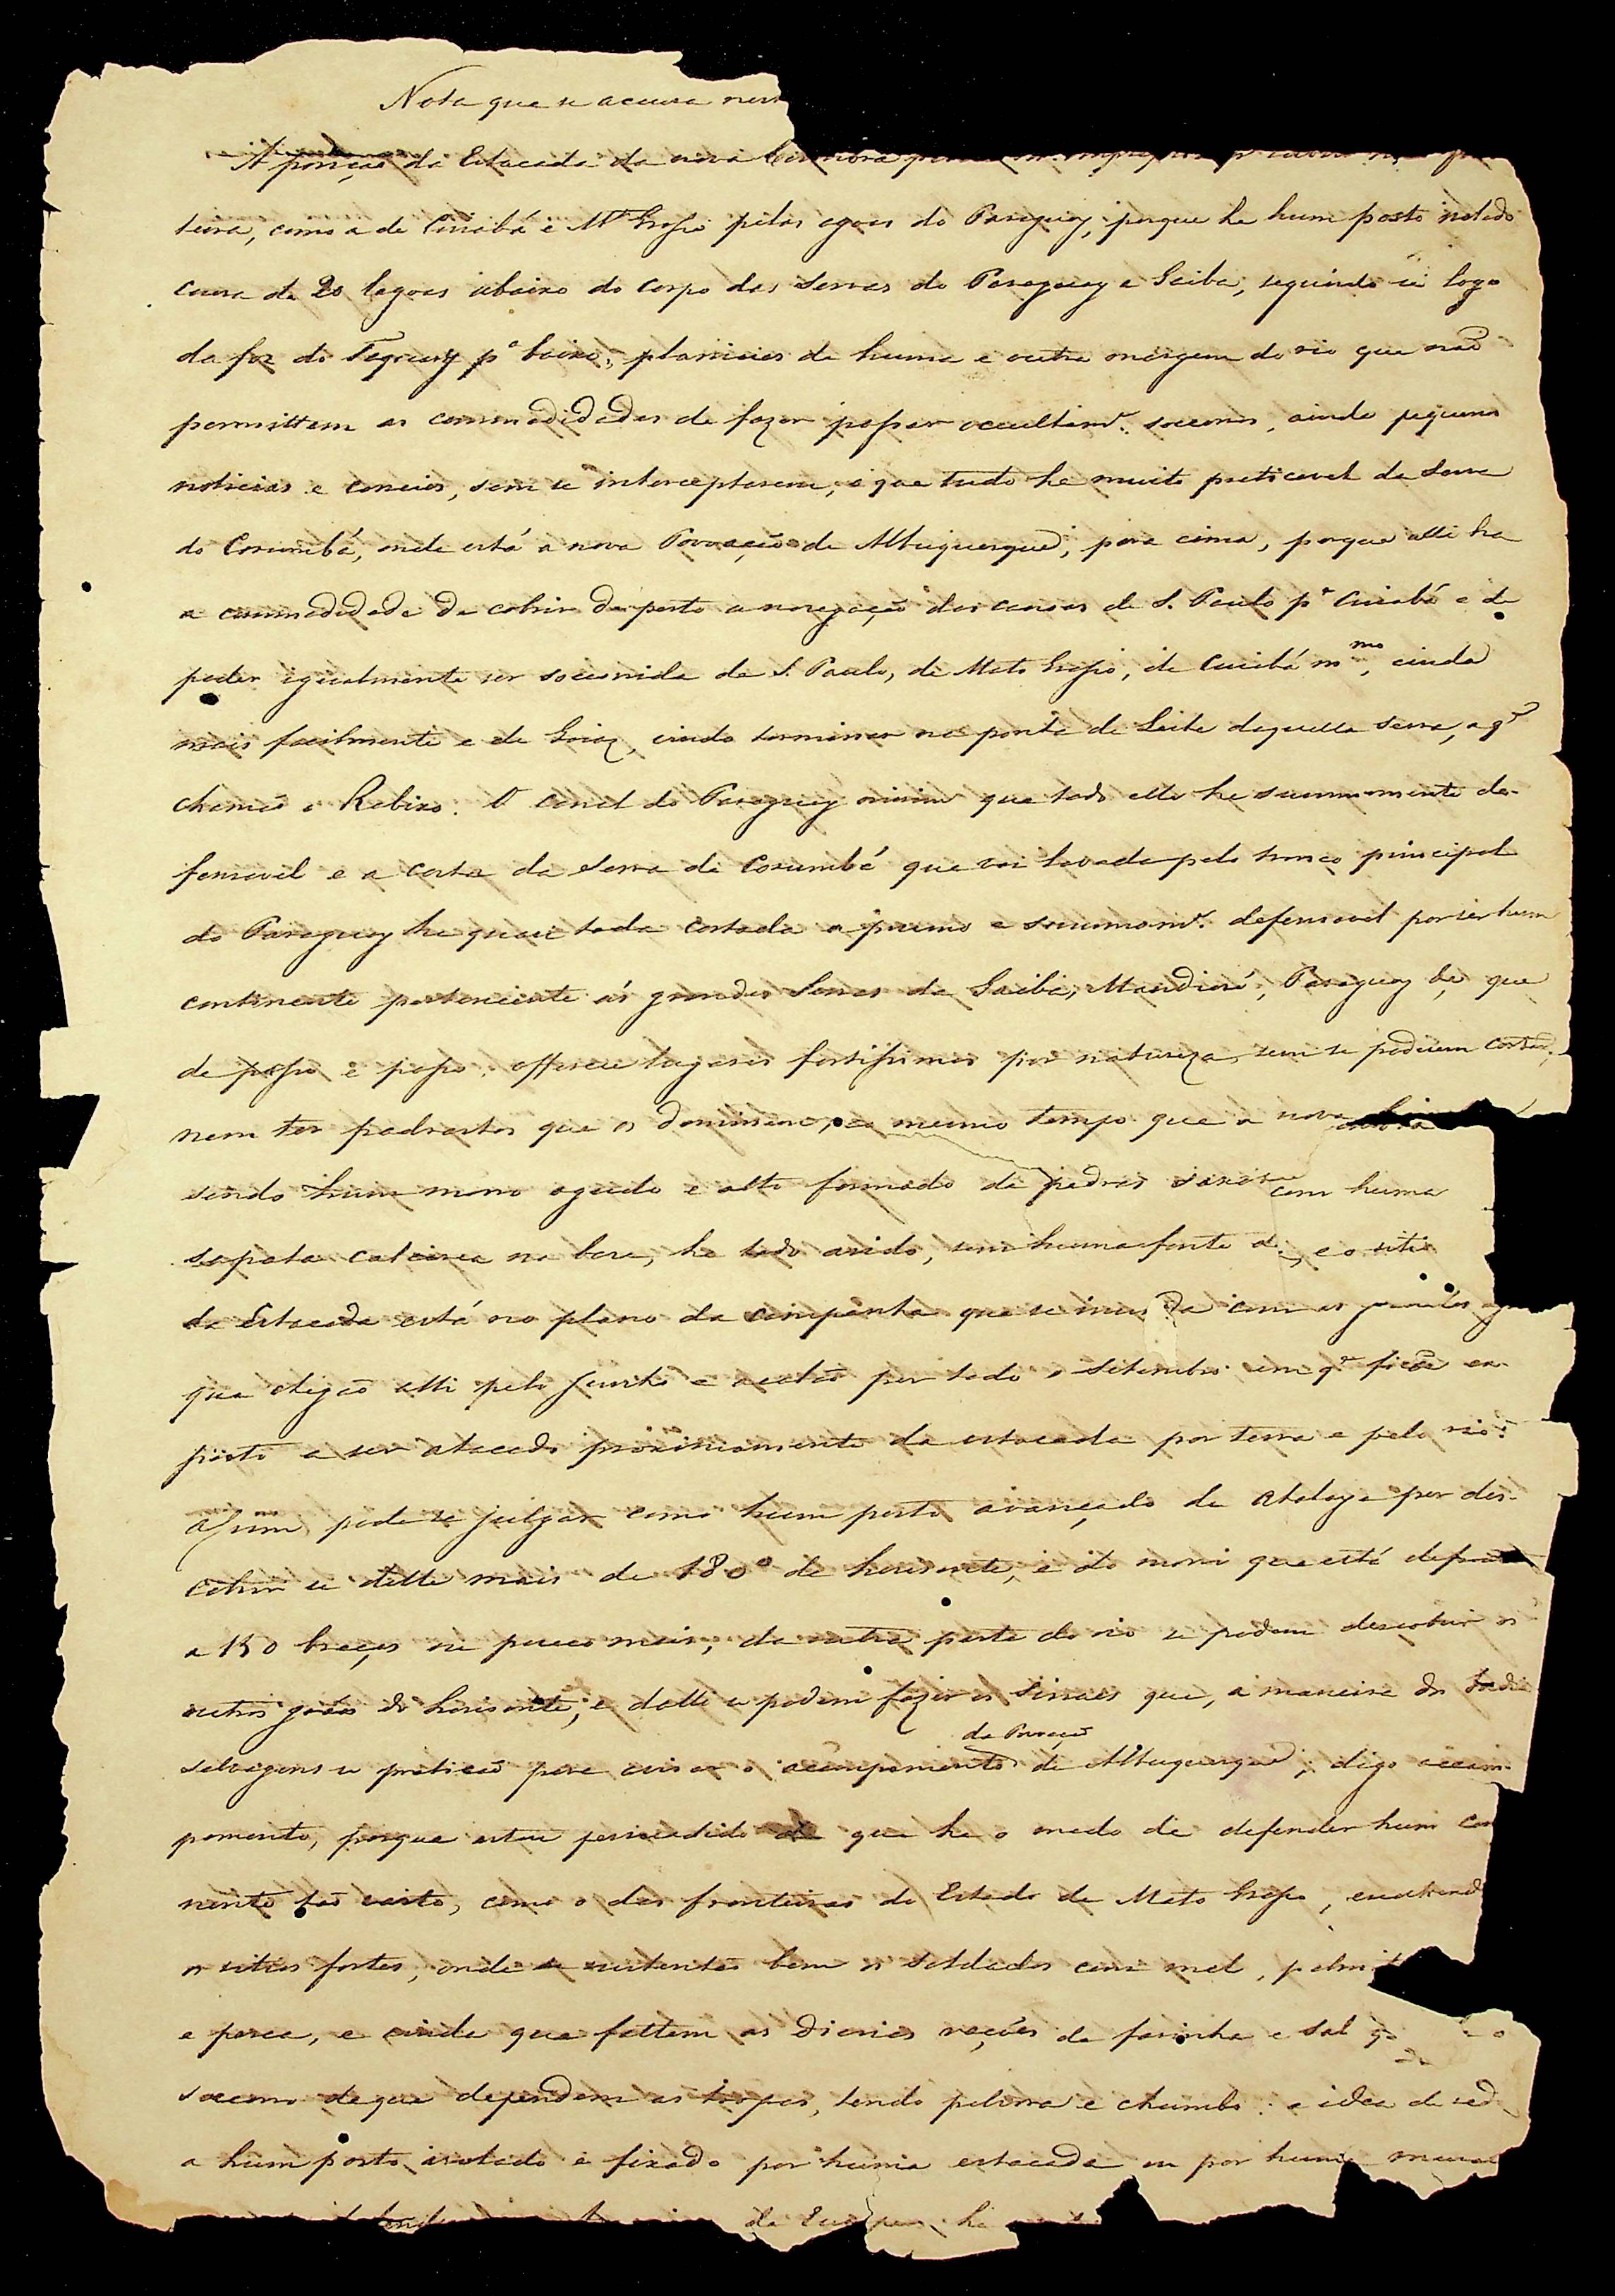 Nota que se accusa nes
A posição da Estacada da nova Coimbra
teira, como a de Cuiabá e Mto Grosso pelas agoas do Paraguay, porque he hum posto isolado
cerca de 20 legoas abaixo do corpo das Serras do Paraguay e Gaiba, seguindo se logo
da foz do Taquary pa baixo, planicies de huma e outra margem do rio que não
permittem as commodidades de fazer passar occultamte. socorros, ainda pequenos
noticias e correios, sem se interceptarem, o que tudo he muito praticavel da Serra
do Corumbá, onde está a nova Povoação de Albuquerque, para cima, porque alli ha
a commodidade de cobrir de perto a navegação das canoas de S. Paulo pa Cuiabá e de
poder igualmente ser socorrida de S. Paulo, de Mato Grosso, de Cuiabá mmo, ainda
mais facilmente e de Goiaz, vindo terminar na ponta de Leste daquella Serra, a qe
chamão o Rabixo. O canal do Paraguay mirim que todo elle he summamente de-
fensavel e a costa da Serra de Corumbá que vai lavada pelo tronco principal
do Paraguay he quasi toda cortada a prumo e summamte. defensavel por ser hum
continente pertencente ás grandes Serras da Gaiba, Mandioré, Paraguay &ç que
de passo e passo offerece lugares fortissimos por natureza, sem se poderem cortar,
nem ter padrastos que os dominem, ao mesmo tempo que a nova
sendo hum morro agudo e alto formado de pedras com huma
sapata calcarea na base, he todo arido, sem huma fonte d. e o sitio
da Estacada está no plano da campanha que se inunda com as grandes agoas
que chegão alli pelo Junho e acabão por todo o Setembro em qe fica ex-
posto a ser atacado proximamente da estacada por terra e pelo rio.
Assim pode se julgar como hum posto avançado de Atalaya por des-
cobrir se delle mais de 180º de horisonte, e do morro que está defronte
a 150 braças ou pouco mais, da outra parte do rio se podem descobrir os
outros gráos do horisonte, e dalli se podem fazer os sinaes que, a maneira dos Indios
selvagens se praticão para avisar o acampamento da Povoação de Albuquerque, digo acam-
pamento, porque estou persuadido que he o modo de defender hum con
nente tão vasto, como o das fronteiras do Estado de Mato Grosso,
os sitios fortes, onde se sustentão bem os soldados com mel, palmit
e pesca, e ainda que faltem as diarias rações de farinha e sal
socorro de que dependem as tropas, tendo polvora e chumbo: a idea de red
a hum posto isolado e fixado por huma estacada ou por huma mura
da Europa he